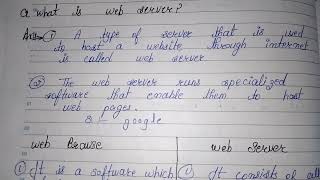 Q. what is web server?
Ans:- (1) A type of server that is used
to host a website through internet
is called web server
(2) The web server runs specialized
software that enable them to host
web pages.
google
web Browse web Server
(1) It is a software which (1) It consists of all